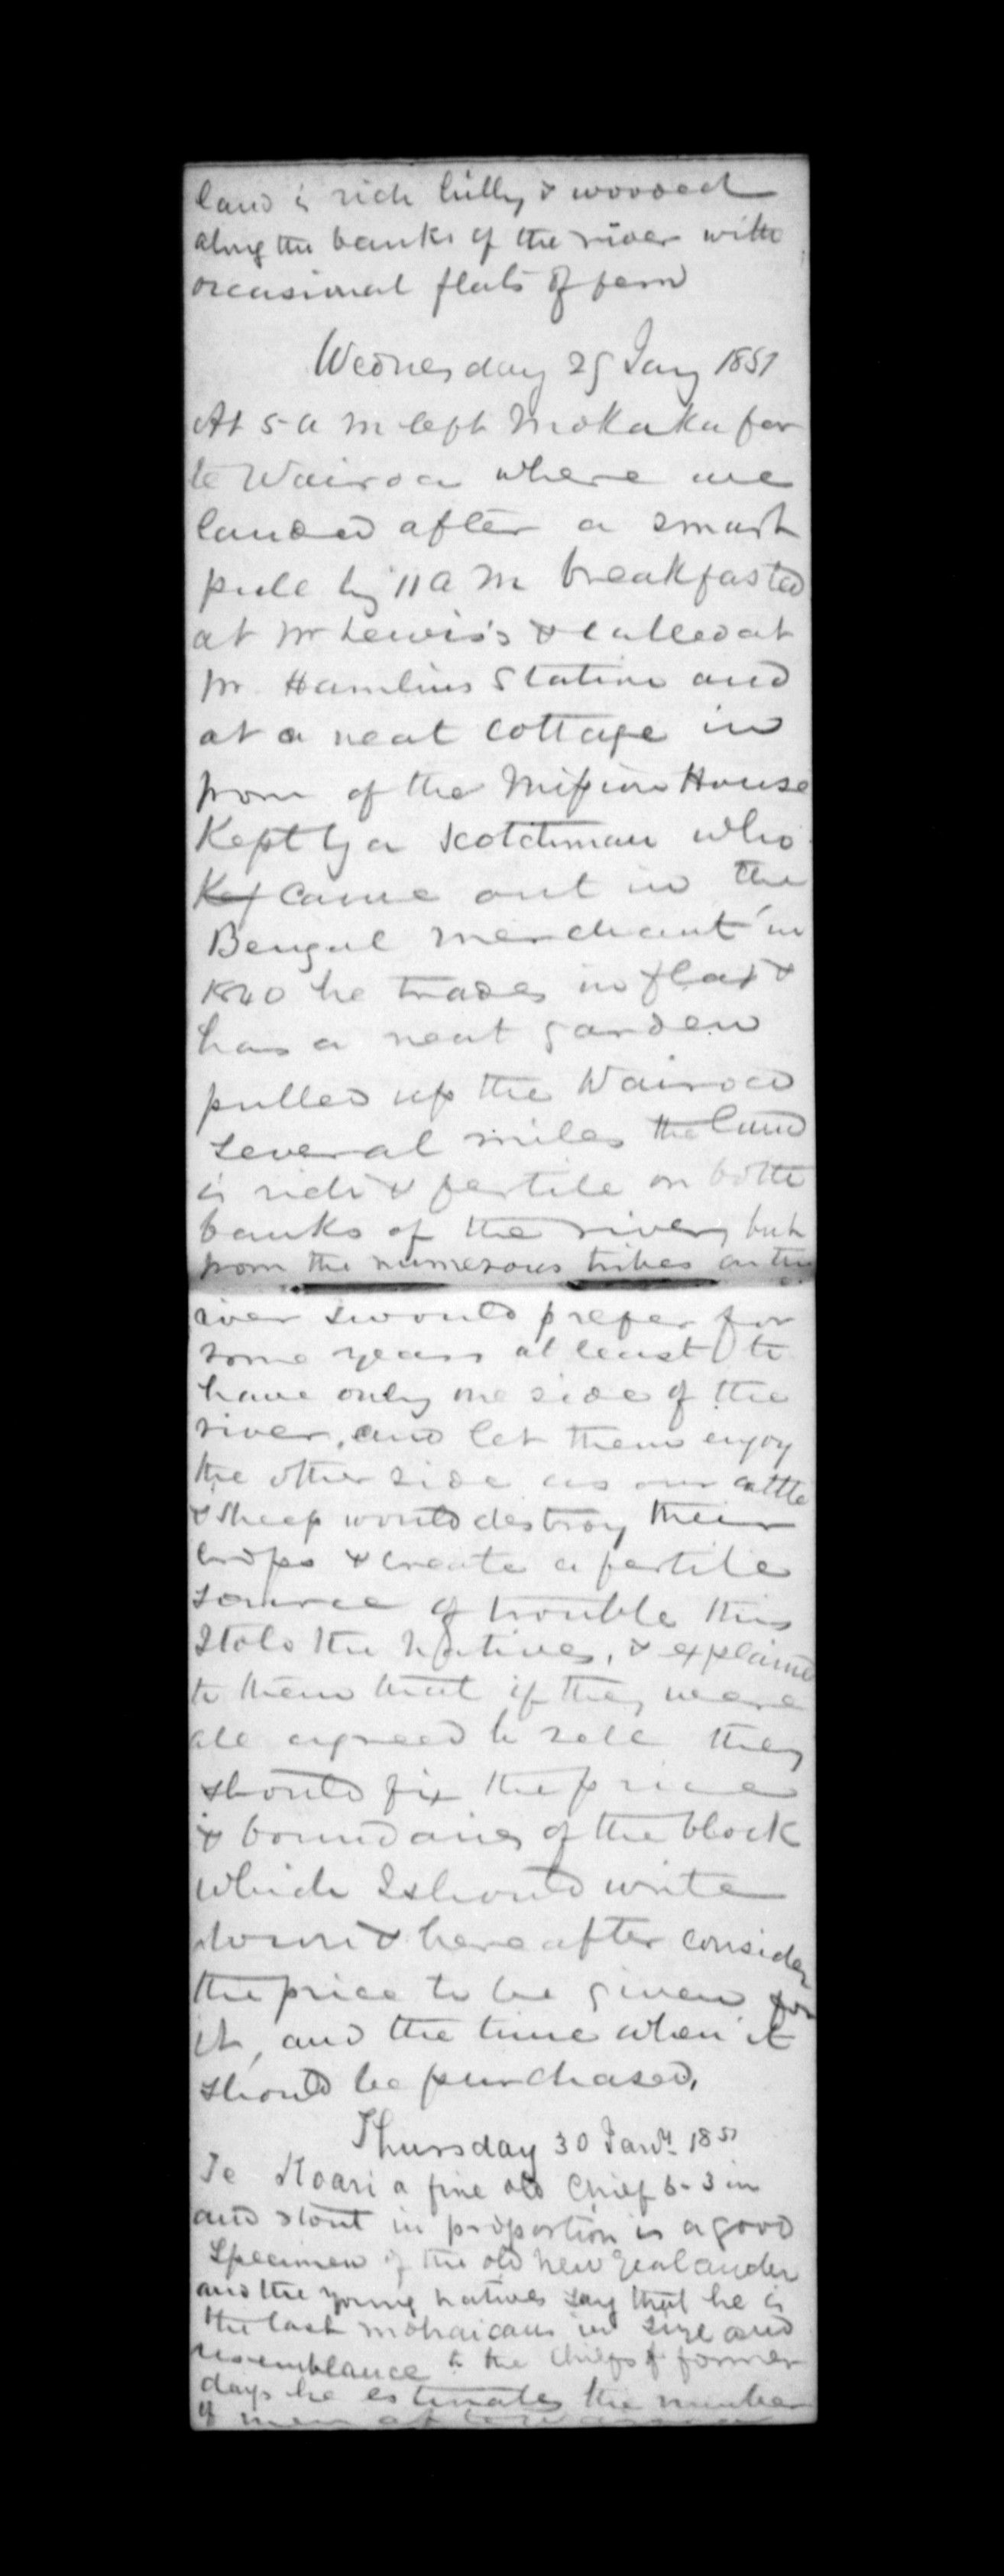 land is rich hilly & wooded
along the banks of the river with
occasional flats of fern
Wednesday 29 Jany 1851
At 5 a m left Mokaka for
te Wairoa where we
landed after a smart
pull by 11 a m breakfasted
at Mr Lewis's & called at
Mr Hamlins Station and
at a neat cottage in
front of the Mission House
Kept by a Scotchman who
Kep came out in the
Bengal Merchant in
1840 he trades in flax &
has a neat garden
pulled up the Wairoa
several miles the land
is rich & fertile on both
banks of the river, but
from the numerous tribes on the
river I would prefer for
some years at least to
have only one side of the
river, and let them enjoy
the other side as our cattle
& sheep would destroy their
crops & create a fertile
source of trouble this
I told the Natives, & explained
to them that if they were
all agreed to sell they
should fix the price
& boundaries of the block
which I should write
down & hereafter consider
the price to be given for
it, and the time when it
should be purchased.
Thursday 30 Jany 1851
Te Koari a fine old Chief 6-3 in
and stout in proportion is a good
specimen of the old New Zealander
and the young natives say that he is
the last mohaicans in size and
resemblance to the Chiefs of former
days he estimates the number
of men at te Wairoa